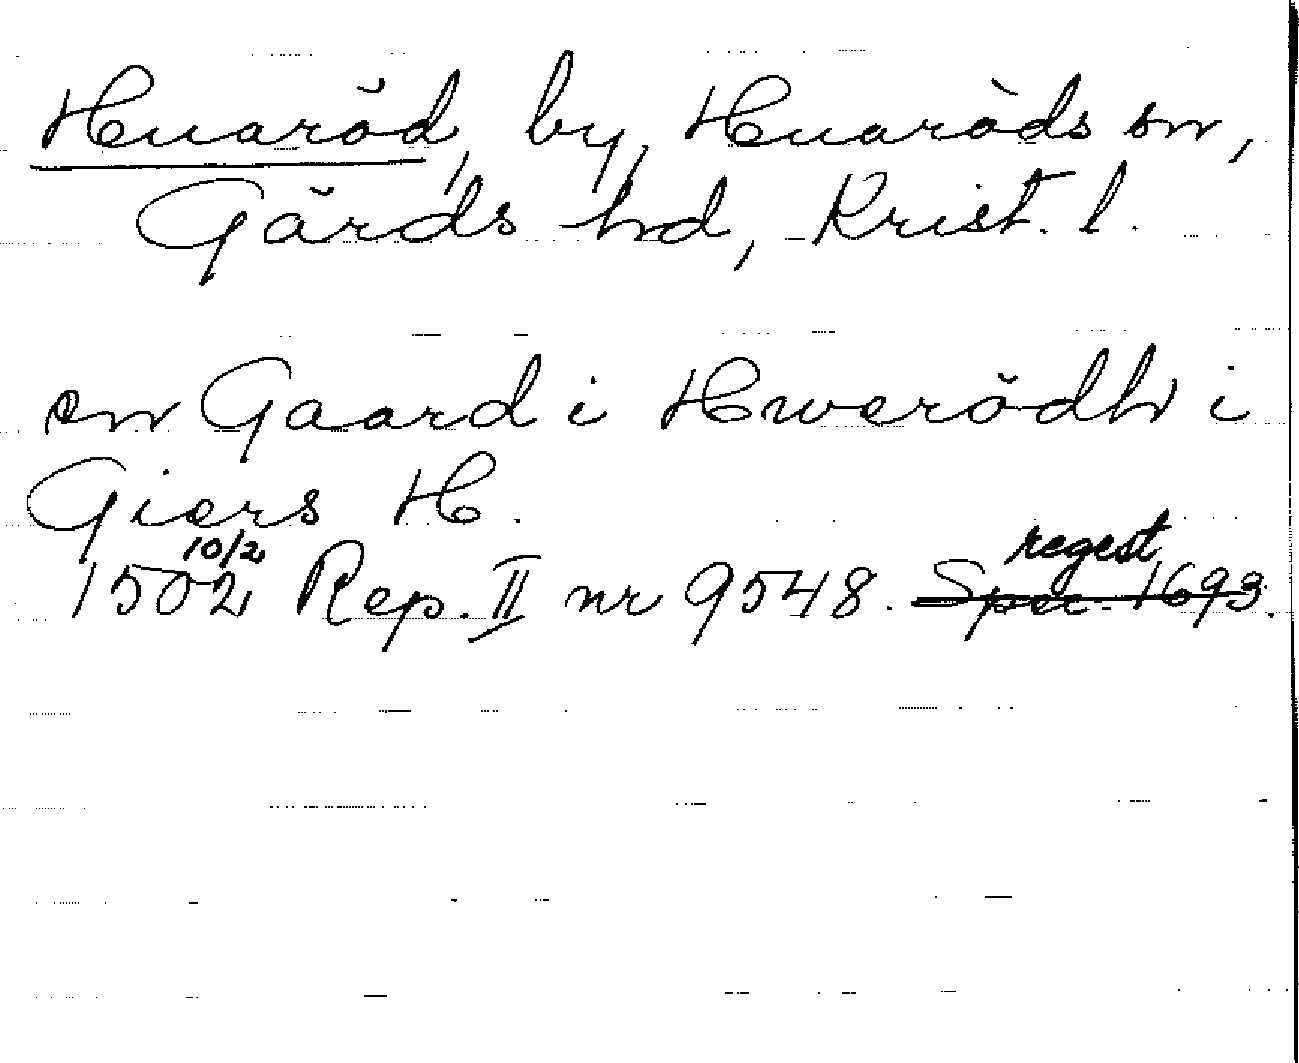 Huaröd, by, Huaröds sn,
Gärds hd, Krist. l.
en Gaard i Hwerödh i
Giers H.
10/2 regest
1502 Rep. II nr 9548. Spec. 1693.